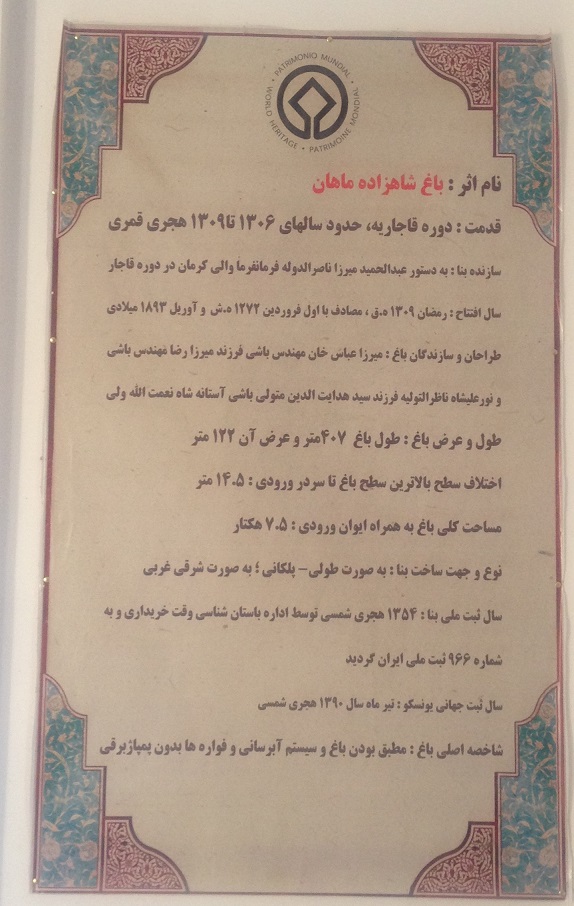 PATRIMONIO MUNDIAL • WORLD HERITAGE • PATRIMOINE MONDIAL •
نام اثر : باغ شاهزاده ماهان
قدمت : دوره قاجاریه، حدود سالهای ۱۳۰۶ تا۱۳۰۹ هجری قمری
سازنده بنا : به دستور عبدالحمید میرزا ناصرالدوله فرمانفرما والی کرمان در دوره قاجار
سال افتتاح : رمضان ۱۳۰۹ ه.ق ، مصادف با اول فروردین ۱۲۷۲ ه.ش و آوریل ۱۸۹۳ میلادی
طراحان و سازندگان باغ : میرزا عباس خان مهندس باشی فرزند میرزا رضا مهندس باشی
و نورعلیشاه ناظرالتولیه فرزند سید هدایت الدین متولی باشی آستانه شاه نعمت الله ولی
طول و عرض باغ : طول باغ ۴۰۷متر و عرض آن ۱۲۲ متر
اختلاف سطح بالاترین سطح باغ تا سردر ورودی : ۱۴.۵ متر
مساحت کلی باغ به همراه ایوان ورودی : ۷.۵ هکتار
نوع و جهت ساخت بنا : به صورت طولی- پلکانی ؛ به صورت شرقی غربی
سال ثبت ملی بنا : ۱۳۵۴ هجری شمسی توسط اداره باستان شناسی وقت خریداری و به
شماره ۹۶۶ ثبت ملی ایران گردید
سال ثبت جهانی یونسکو : تیر ماه سال ۱۳۹۰ هجری شمسی
شاخصه اصلی باغ : مطبق بودن باغ و سیستم آبرسانی و فواره ها بدون پمپاژبرقی